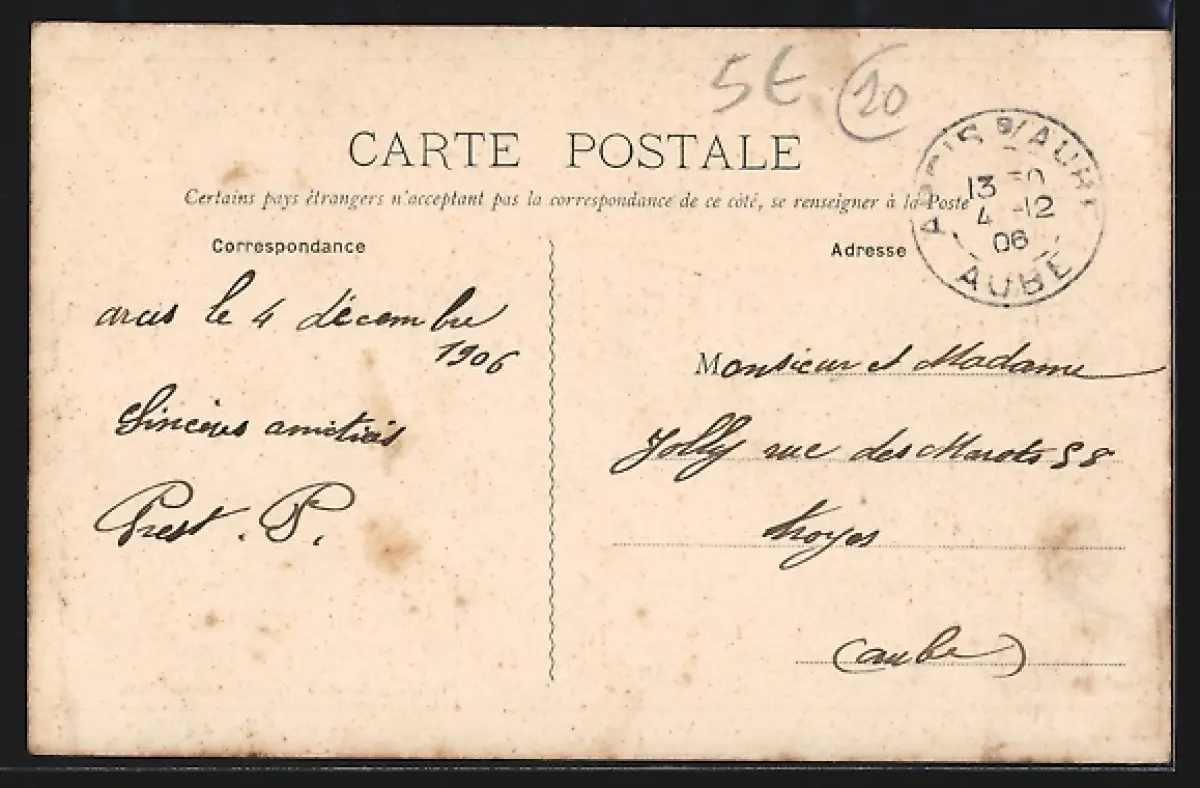 5€ 20
CARTE POSTALE
Certains pays étrangers n'acceptant pas la correspondance de ce côté, se renseigner à la Poste
ARCIS S/AUBE
13 30
4 -12
06
AUBE
Correspondance
Adresse
arcis le 4 décembre
1906
Sincères amitiés
Prest. P.
Monsieur et Madame
Jolly rue des Marots 58
troyes
(aube)